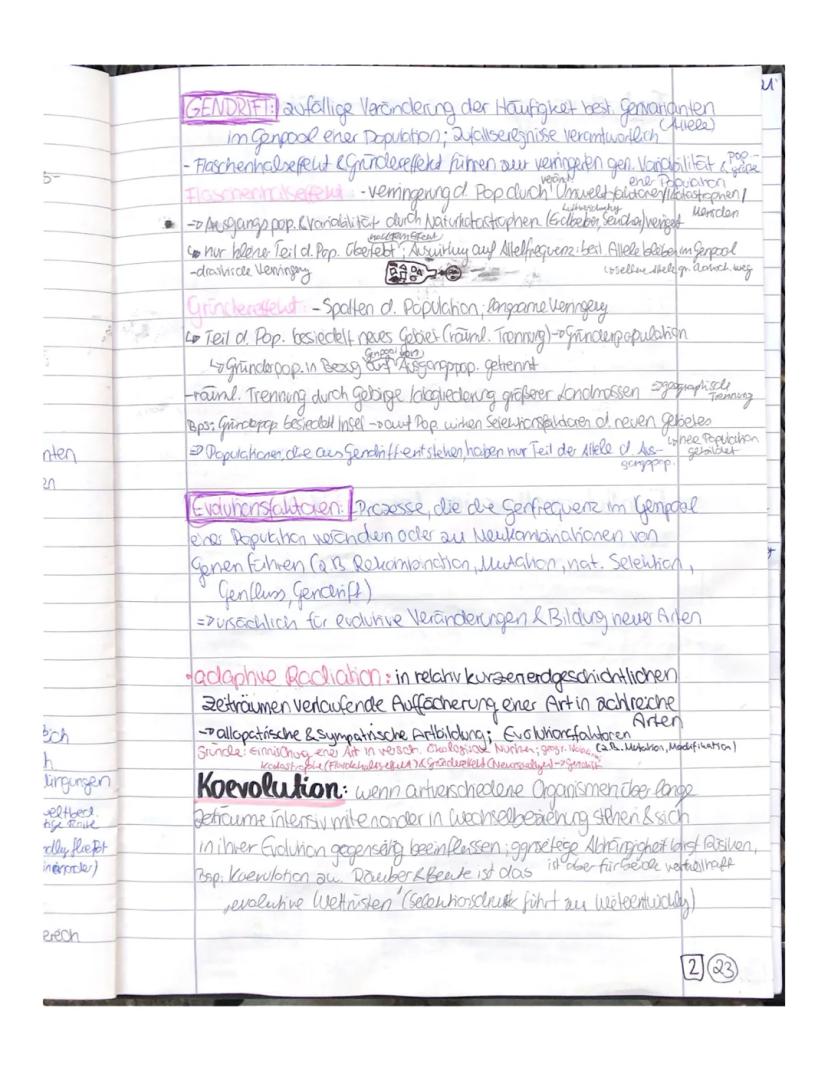 GENDRIFT: zufällige Veränderung der Häufigkeit best. Genvarianten
(Allele)
im Genpool einer Population; Zufallsereignisse verantwortlich
- Flaschenhalseffekt & Gründereffekt führen zur verringerten gen. Variabilität & Pop.-
größe
Flaschenhalseffekt: - Verringerung d. Pop durch Umwelt
einer Population
Menschen
-> Ausgangspop. & Variabilität durch Naturkatastrophen (Erdbeben, Seuche) verringert
↳ nur kleine Teil d. Pop. überlebt; Auswirkung auf Allelfrequenz: best. Allele bleiben im Genpool
- drastische Verringerung
↳ seltene Allele weg
Gründereffekt: - Spalten d. Population; langsame Verringerung
↳ Teil d. Pop. besiedelt neues Gebiet (räuml. Trennung) -> Gründerpopulation
↳ Gründerpop. in Bezug auf Ausgangspop. getrennt
- räuml. Trennung durch Gebirge / Abgliederung größerer Landmassen => geographische
Trennung
Bps: Gründerpop besiedelt Insel -> auf Pop. wirken Selektionsfaktoren d. neuen Gebietes
↳ neue Population
gebildet
=> Populationen, die aus Gendrift entstehen, haben nur Teil der Allele d. Aus-
gangspop.
Evolutionsfaktoren: Prozesse, die die Genfrequenz im Genpool
einer Population verändern oder zu Neukombinationen von
Genen führen (z.B. Rekombination, Mutation, nat. Selektion,
Genfluss, Gendrift)
=> ursächlich für evolutive Veränderungen & Bildung neuer Arten
• adaptive Radiation: in relativ kurzen erdgeschichtlichen
Zeiträumen verlaufende Auffächerung einer Art in zahlreiche
Arten
-> allopatrische & sympatrische Artbildung; Evolutionsfaktoren
(z.B. Mutation, Modifikation)
Gründe: Einnischung einer Art in versch. ökologische Nischen;
Katastrophe (Flaschenhalseffekt) & Gründereffekt
Koevolution: wenn artverschiedene Organismen über lange
Zeiträume intensiv miteinander in Wechselbeziehung stehen & sich
in ihrer Evolution gegenseitig beeinflussen; ggnseitige Abhängigkeit birgt Risiken,
ist aber für beide vorteilhaft
Bsp. Koevolution zw. Räuber & Beute ist das
„evolutive Wettrüsten" (Selektionsdruck führt zu Weiterentwicklg)
2 23
nten
en
h
ürgungen
eltbed.
erech